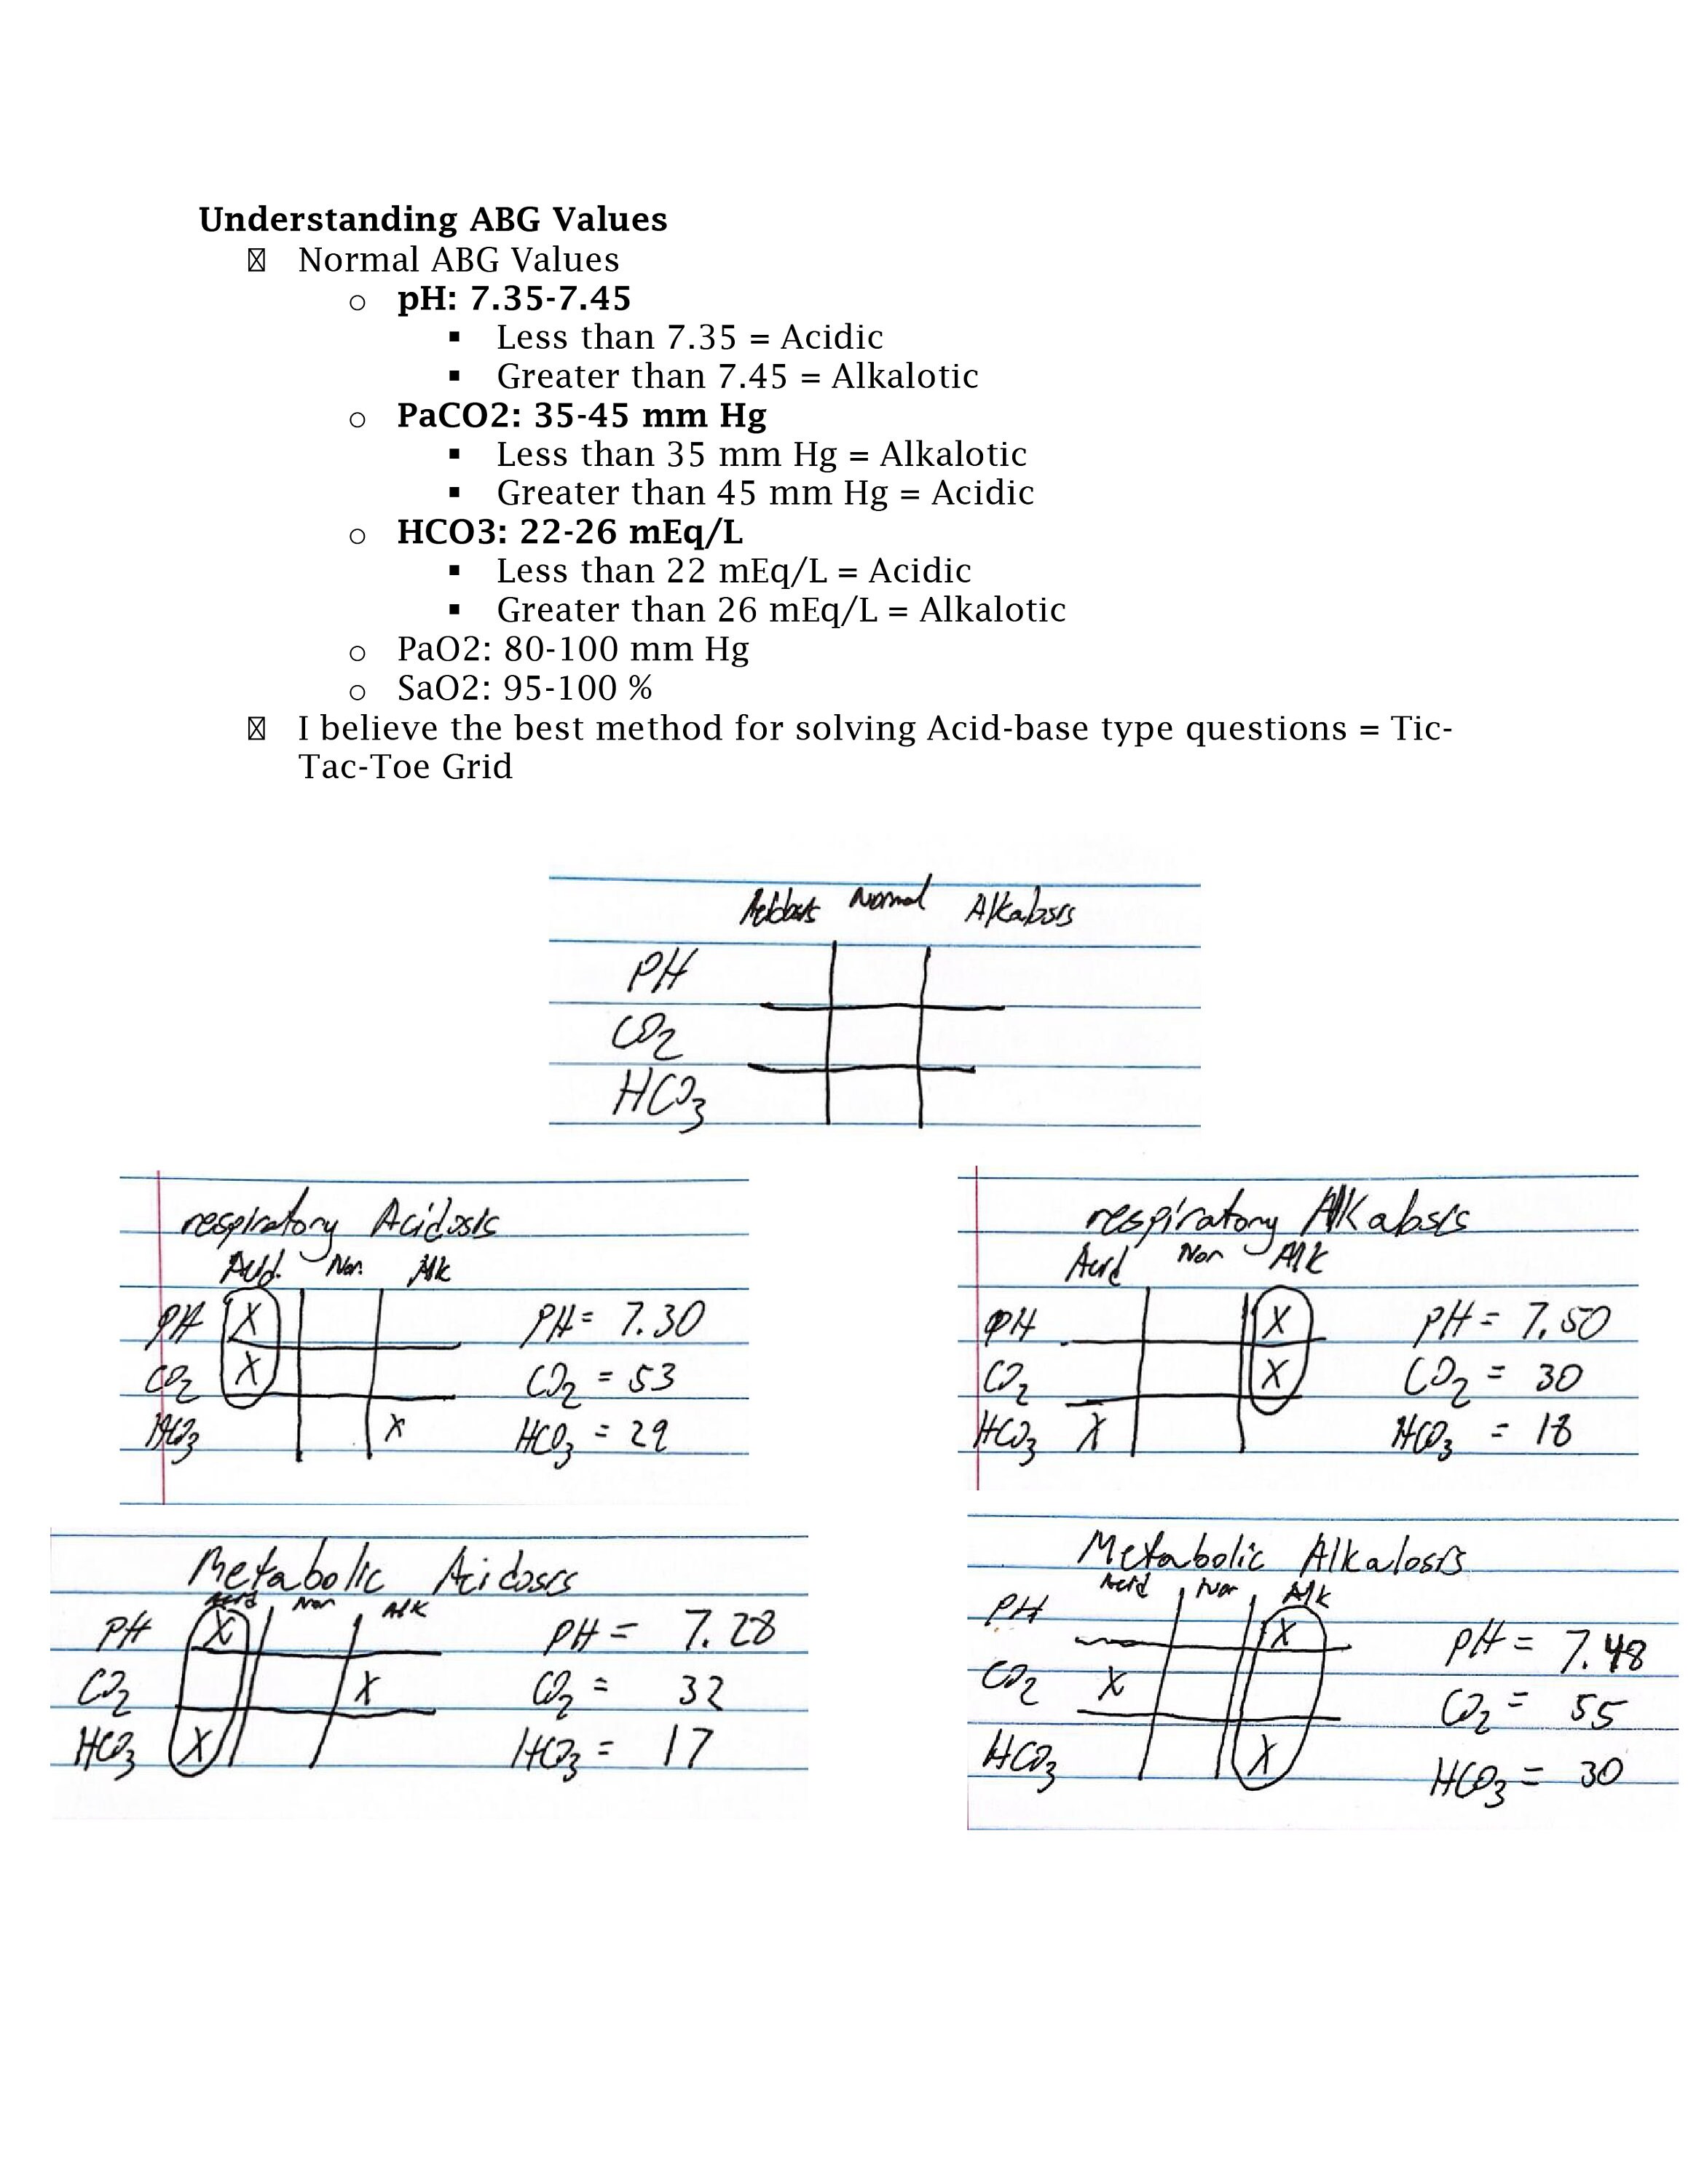 Understanding ABG Values
Normal ABG Values
o pH: 7.35-7.45
▪ Less than 7.35 = Acidic
▪ Greater than 7.45 = Alkalotic
o PaCO2: 35-45 mm Hg
▪ Less than 35 mm Hg = Alkalotic
▪ Greater than 45 mm Hg = Acidic
o HCO3: 22-26 mEq/L
▪ Less than 22 mEq/L = Acidic
▪ Greater than 26 mEq/L = Alkalotic
o PaO2: 80-100 mm Hg
o SaO2: 95-100 %
I believe the best method for solving Acid-base type questions = Tic-
Tac-Toe Grid
Acidosis Normal Alkalosis
PH
CO2
HCO3
respiratory Acidosis
Acid. Nor. Alk
PH X PH = 7.30
CO2 X CO2 = 53
HCO3 X HCO3 = 29
respiratory Alkalosis
Acid Nor Alk
PH X PH = 7.50
CO2 X CO2 = 30
HCO3 X HCO3 = 18
Metabolic Acidosis
Acid Nor Alk
PH X PH = 7.28
CO2 X CO2 = 32
HCO3 X HCO3 = 17
Metabolic Alkalosis
Acid Nor Alk
PH X PH = 7.48
CO2 X CO2 = 55
HCO3 X HCO3 = 30